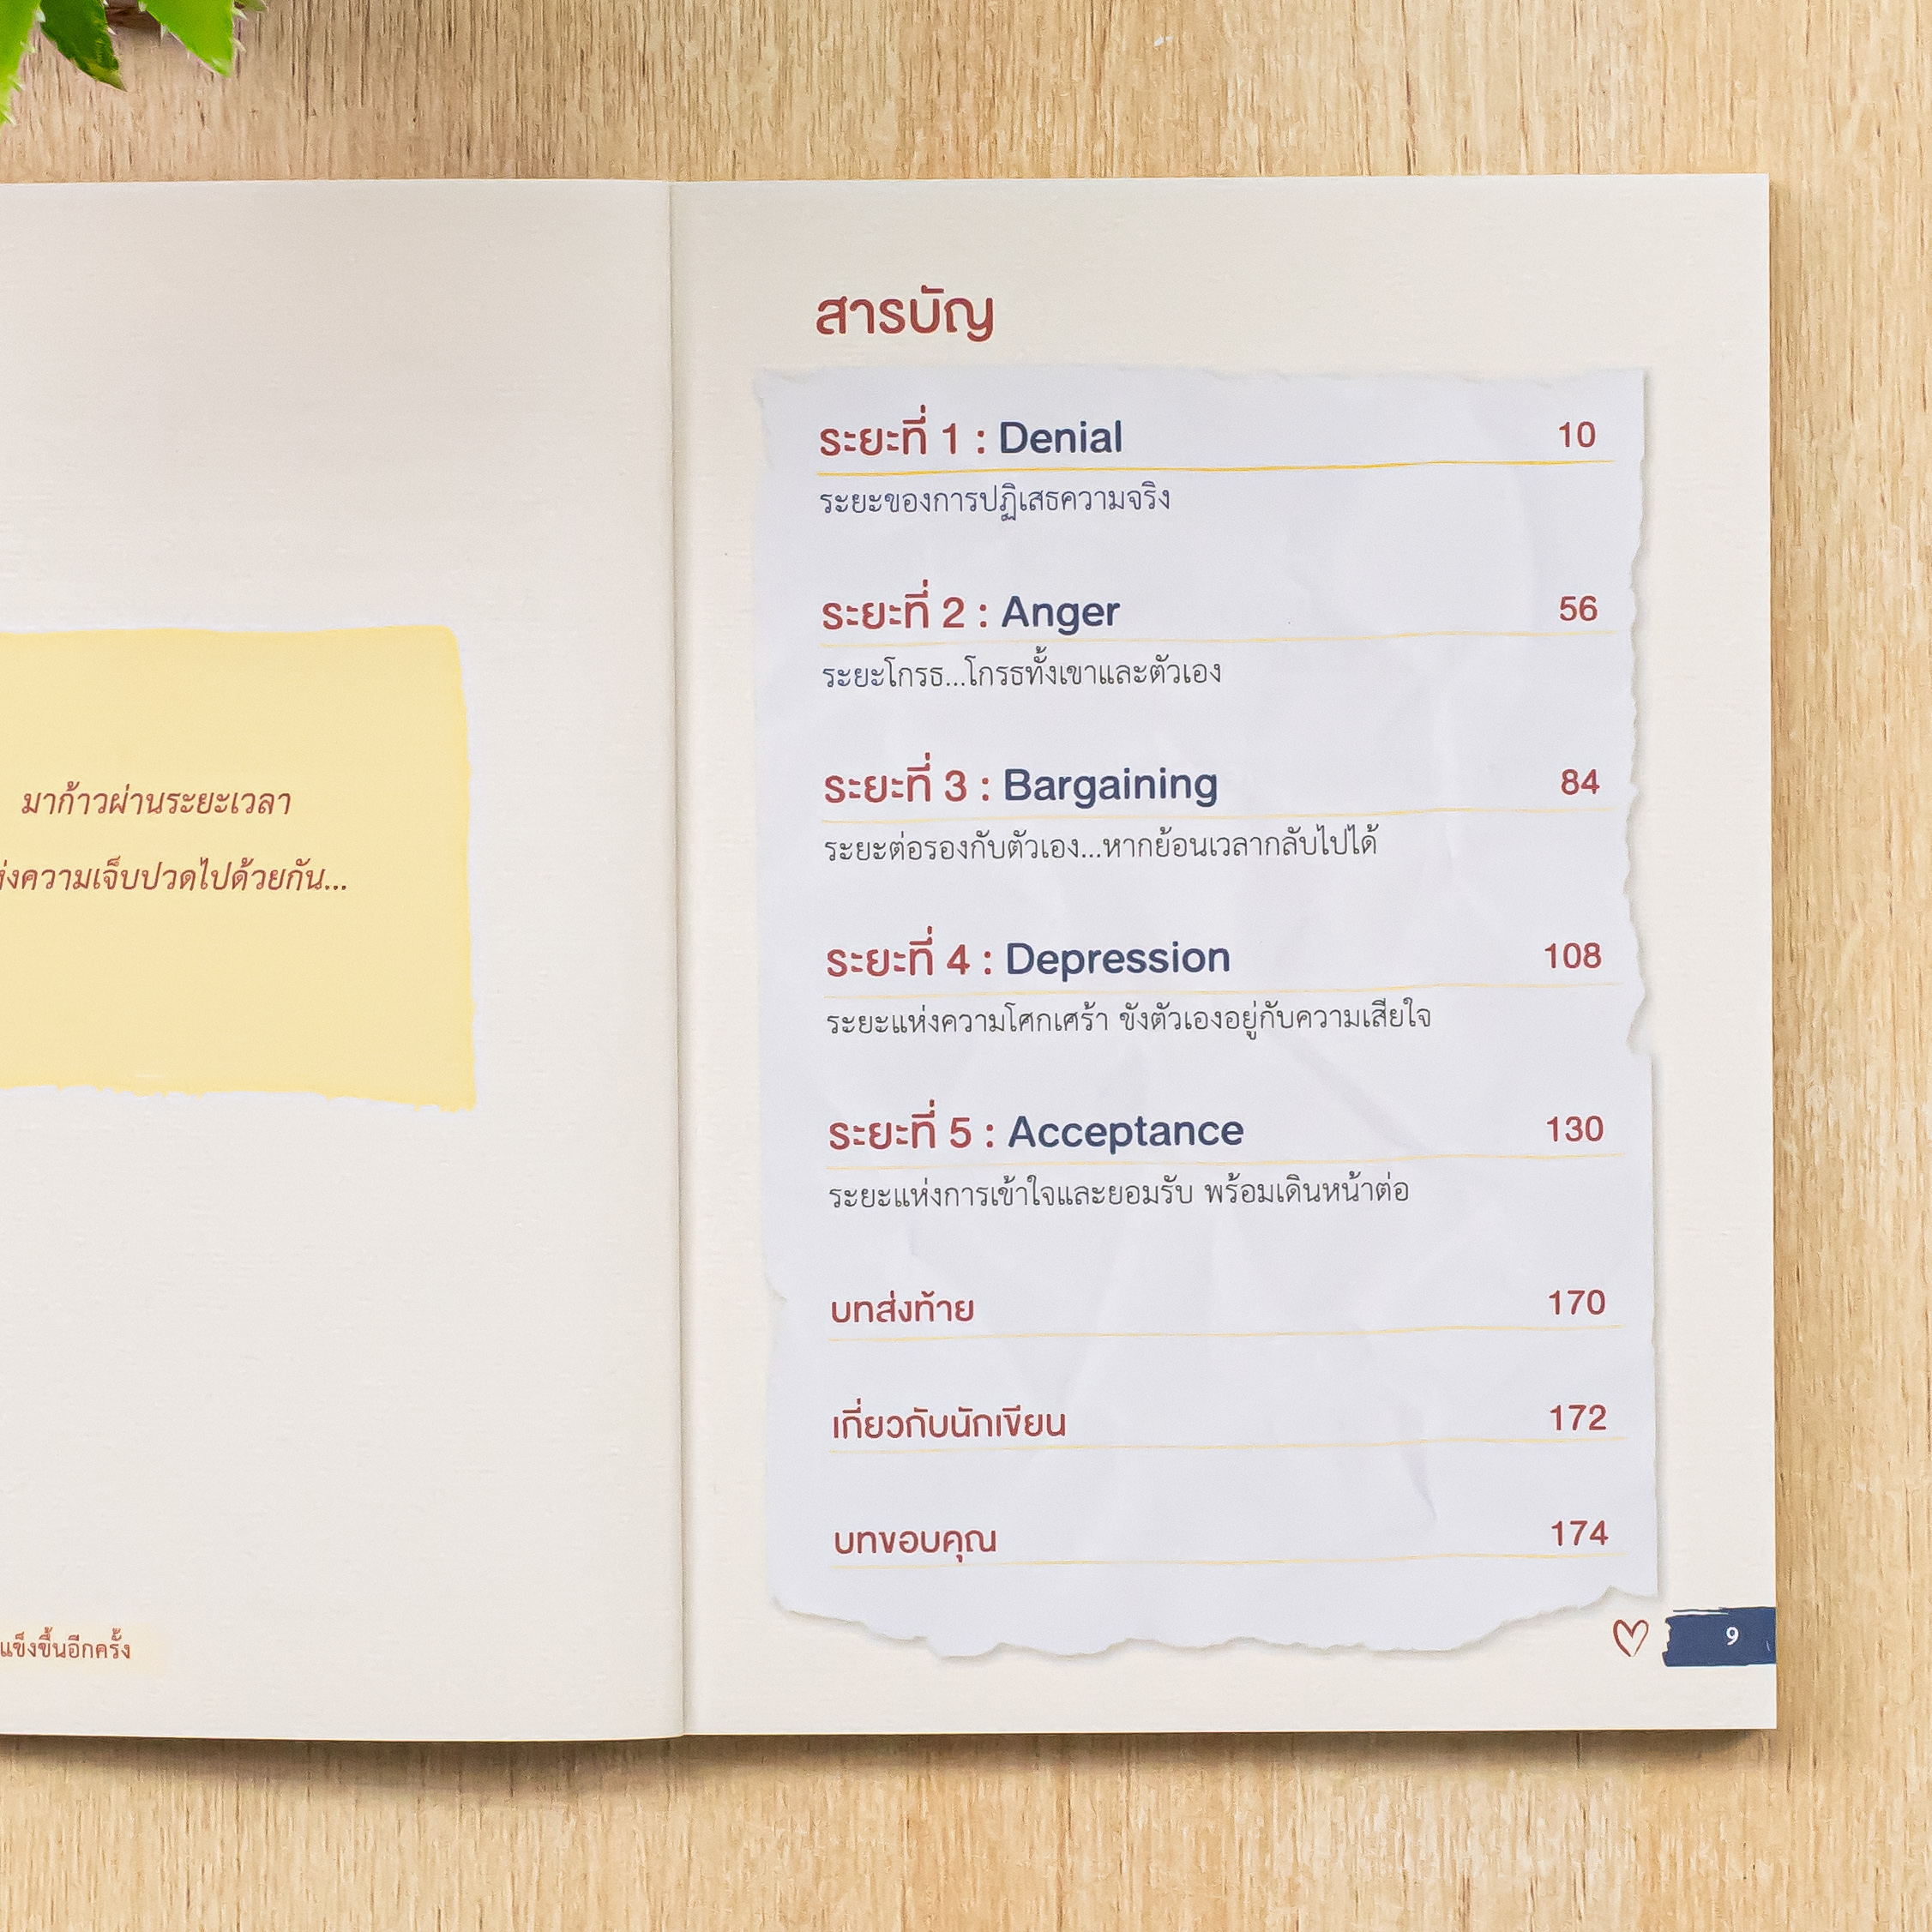 มาก้าวผ่านระยะเวลา
แห่งความเจ็บปวดไปด้วยกัน...
แข็งขึ้นอีกครั้ง
สารบัญ
ระยะที่ 1 : Denial 10
ระยะของการปฏิเสธความจริง
ระยะที่ 2 : Anger 56
ระยะโกรธ...โกรธทั้งเขาและตัวเอง
ระยะที่ 3 : Bargaining 84
ระยะต่อรองกับตัวเอง...หากย้อนเวลากลับไปได้
ระยะที่ 4 : Depression 108
ระยะแห่งความโศกเศร้า ขังตัวเองอยู่กับความเสียใจ
ระยะที่ 5 : Acceptance 130
ระยะแห่งการเข้าใจและยอมรับ พร้อมเดินหน้าต่อ
บทส่งท้าย 170
เกี่ยวกับนักเขียน 172
บทขอบคุณ 174
9